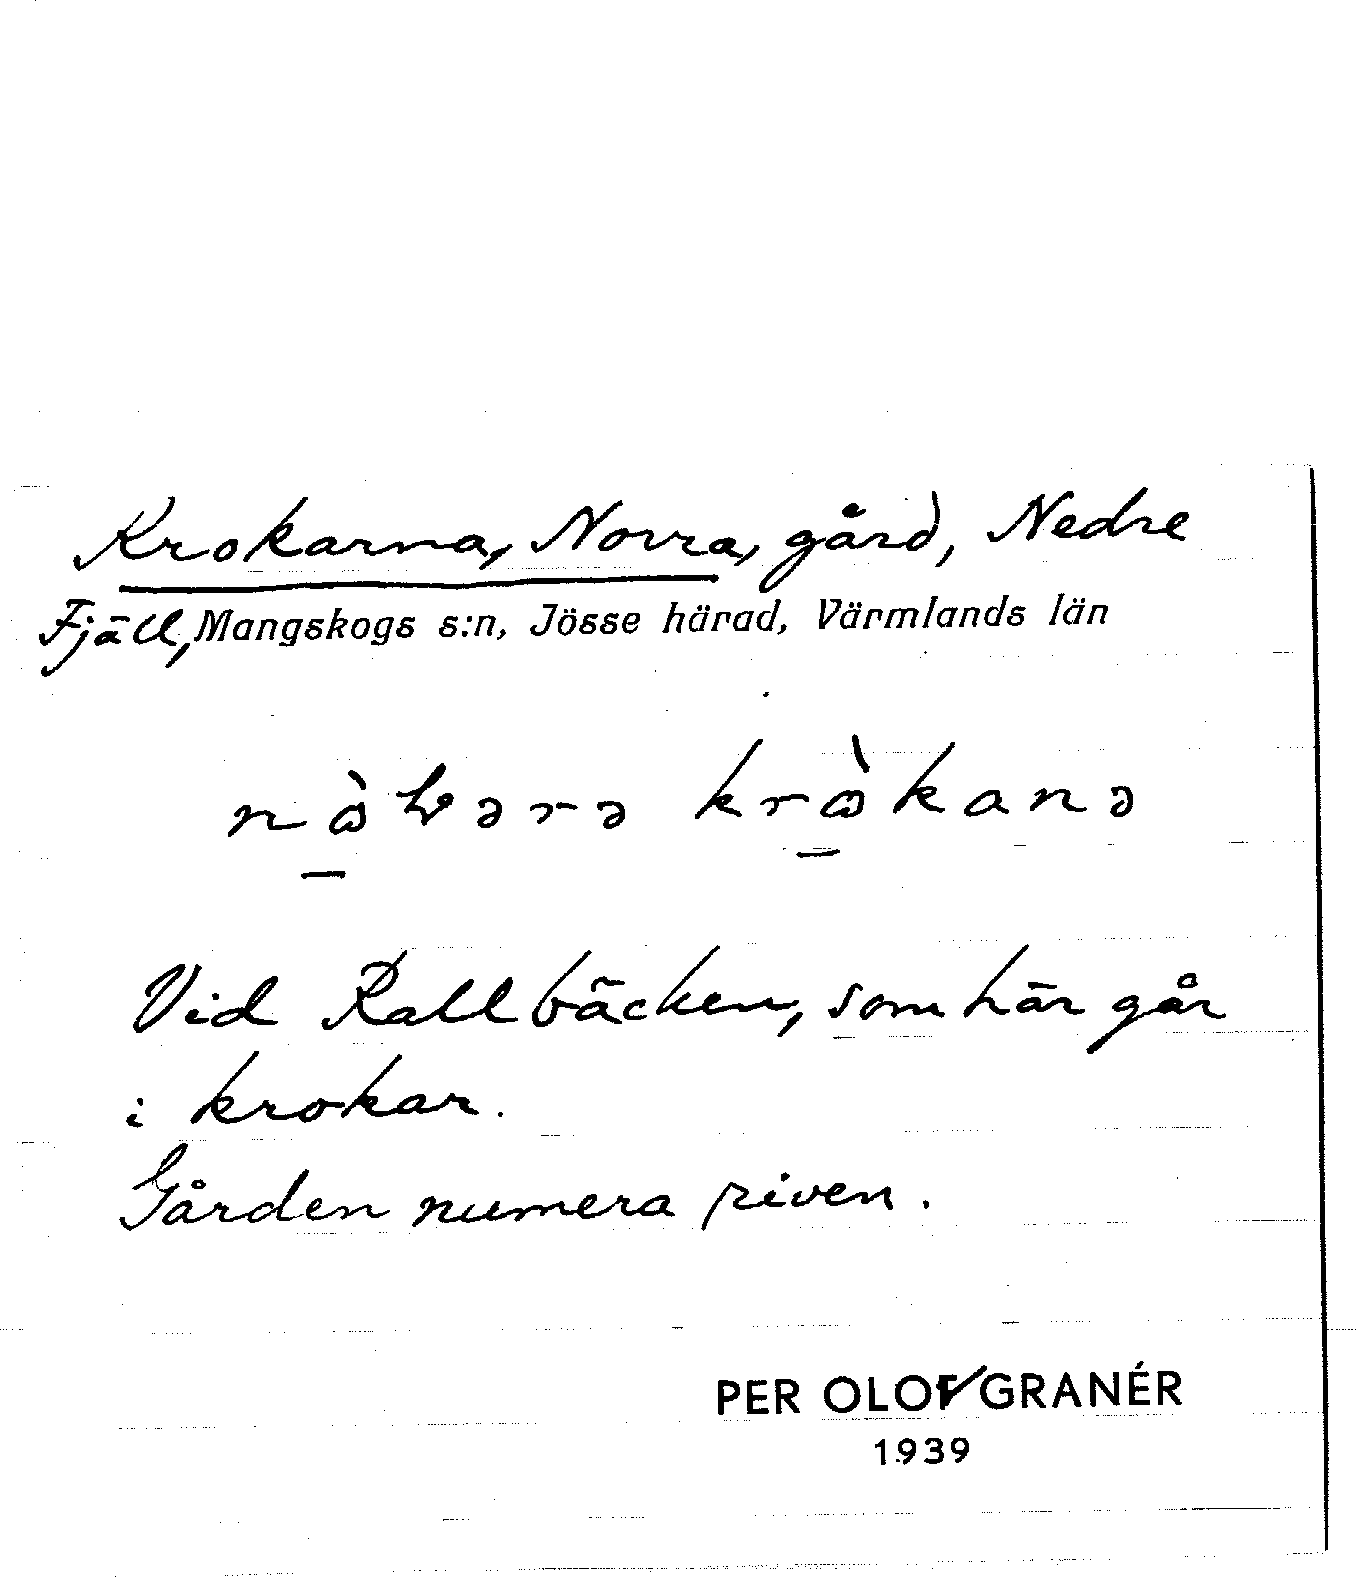 Krokarna, Norra, gård, Nedre
Fjäll, Mangskogs s:n, Jösse härad, Värmlands län
krὼkanə
Vid Rallbäcken, som här går
i krokar.
Gården numera riven.
PER OLOV GRANÉR
1939